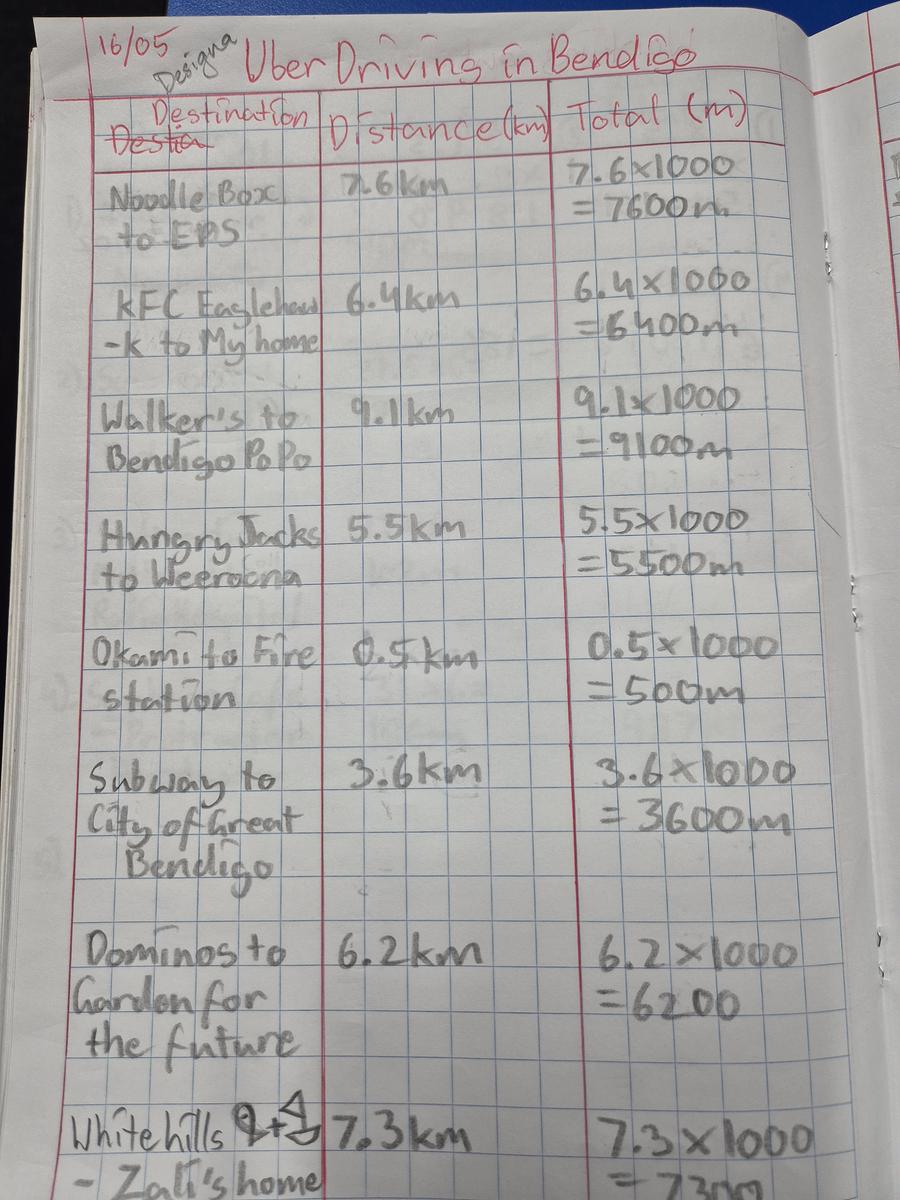 16/05 Designa Uber Driving in Bendigo
Destination
Destin
Distance (km)
Total (m)
Noodle Box
to EPS
7.6km
7.6×1000
=7600m
KFC Eaglehaw
-k to My home
6.4km
6.4×1000
=6400m
Walker's to
Bendigo PoPo
9.1km
9.1×1000
=9100m
Hungry Jacks
to Weeroona
5.5km
5.5×1000
=5500m
Okami to Fire
station
0.5km
0.5×1000
=500m
Subway to
City of Great
Bendigo
3.6km
3.6×1000
=3600m
Dominos to
Garden for
the future
6.2km
6.2×1000
=6200
White hills
- Zali's home
7.3km
7.3×1000